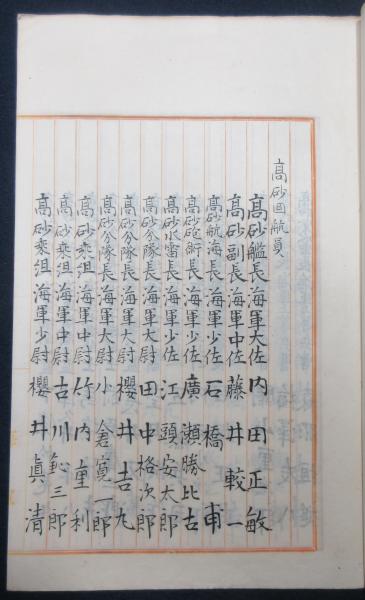 高砂回航員
高砂艦長海軍大佐内田正敏
高砂副長海軍中佐藤井較一
高砂航海長海軍少佐石橋甫
高砂砲術長海軍少佐廣瀬勝比古
高砂水雷長海軍少佐江頭安太郎
高砂分隊長海軍大尉田中格次郎
高砂分隊長海軍大尉櫻井吉丸
高砂分隊長海軍大尉小倉寛一郎
高砂乗組海軍中尉竹内重利
高砂乗組海軍中尉古川鈊三郎
高砂乗組海軍少尉櫻井眞清